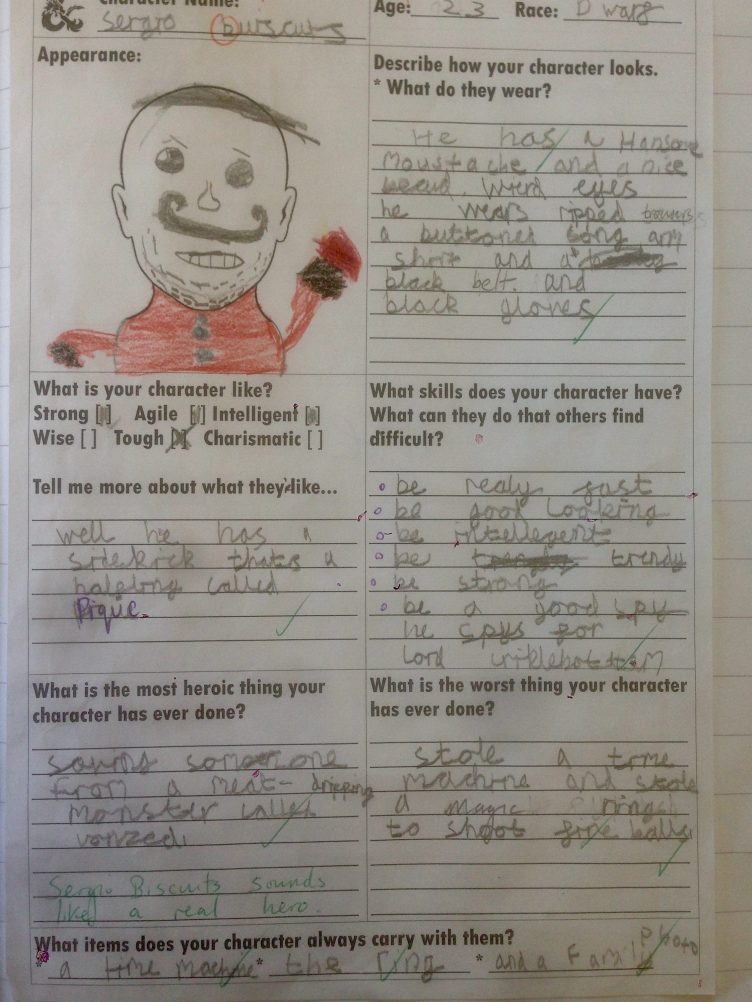 Character Name:
Sergio Buiscuits
Age: 23 Race: Dwarf
Appearance:
Describe how your character looks.
* What do they wear?
He has a Hansome
Moustache and a nice
beard. Wierd eyes
he wears ripped trowsers
a buttoned long arm
shirt and a
black belt. and
black gloves
What is your character like?
Strong [ ] Agile [/] Intelligent [ ]
Wise [ ] Tough [X] Charismatic [ ]
Tell me more about what they like...
well he has a
sidekick thats a
halfling called
Pique.
What skills does your character have?
What can they do that others find
difficult?
be realy fast
be good Looking
be intellegent
be trendy
be strong
be a good spy
he spys for
Lord
What is the most heroic thing your
character has ever done?
saving someone
from a meat-dripping
monster called
vonzed.
Sergio Biscuits sounds
like a real hero.
What is the worst thing your character
has ever done?
stole a time
machine and stole
a magic ring
to shoot fire balls
What items does your character always carry with them?
* a time machine * the ring * and a Family Photo